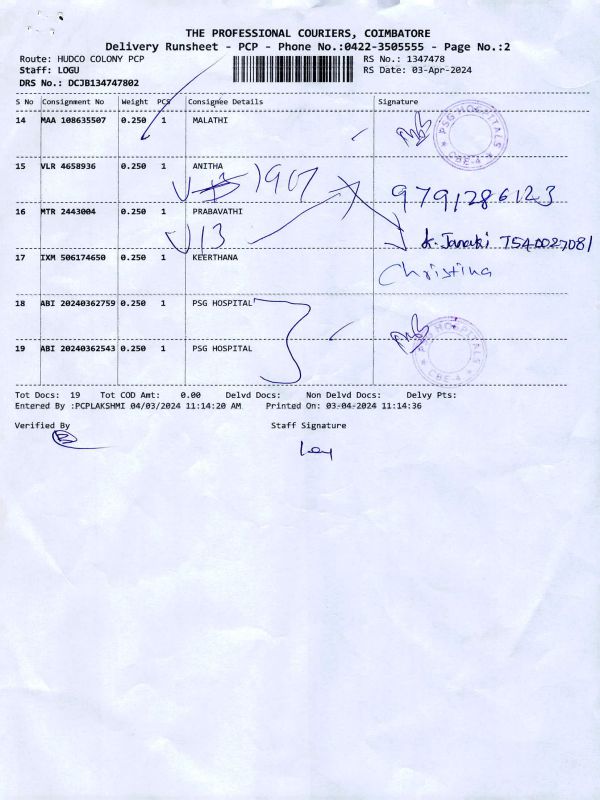 THE PROFESSIONAL COURIERS, COIMBATORE
Delivery Runsheet - PCP - Phone No.:0422-3505555 - Page No.:2
Route: HUDCO COLONY PCP
Staff: LOGU
DRS No.: DCJB134747802
RS No.: 1347478
RS Date: 03-Apr-2024
S No Consignment No Weight PCS Consignee Details Signature
14 MAA 108635507 0.250 1 MALATHI
PSG HOSPITALS CBE-4
15 VLR 4658936 0.250 1 ANITHA
1907
9791286123
16 MTR 2443004 0.250 1 PRABAVATHI
V13
K. Janaki
17 IXM 506174650 0.250 1 KEERTHANA
Christina
18 ABI 20240362759 0.250 1 PSG HOSPITAL
PSG HOSPITALS CBE-4
19 ABI 20240362543 0.250 1 PSG HOSPITAL
Tot Docs: 19 Tot COD Amt: 0.00 Delvd Docs: Non Delvd Docs: Delvy Pts:
Entered By :PCPLAKSHMI 04/03/2024 11:14:20 AM Printed On: 03-04-2024 11:14:36
Verified By Staff Signature